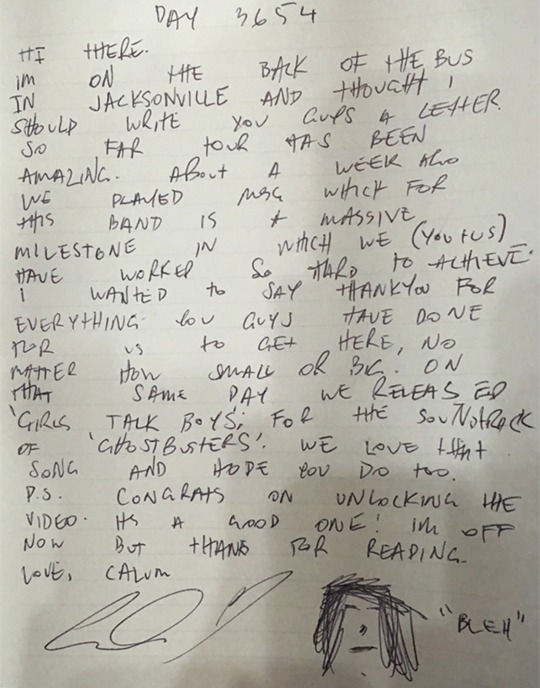 DAY 3654
HI THERE.
IM ON THE BACK OF THE BUS
IN JACKSONVILLE AND THOUGHT I
SHOULD WRITE YOU GUYS A LETTER.
SO FAR TOUR HAS BEEN
AMAZING. ABOUT A WEEK AGO
WE PLAYED MSG WHICH FOR
THIS BAND IS A MASSIVE
MILESTONE IN WHICH WE (YOU+US)
HAVE WORKED SO HARD TO ACHIEVE.
I WANTED TO SAY THANKYOU FOR
EVERYTHING YOU GUYS HAVE DONE
FOR US TO GET HERE, NO
MATTER HOW SMALL OR BIG. ON
THAT SAME DAY WE RELEASED
'GIRLS TALK BOYS', FOR THE SOUNDTRACK
OF 'GHOSTBUSTERS'. WE LOVE THAT
SONG AND HOPE YOU DO TOO.
P.S. CONGRATS ON UNLOCKING THE
VIDEO. ITS A GOOD ONE! IM OFF
NOW BUT THANKS FOR READING.
LOVE, CALUM
"BLEH"